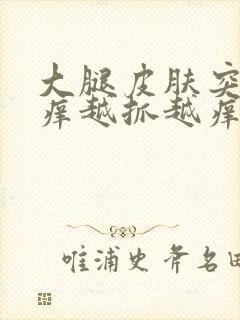 大腿皮肤突
痒越抓越痒
唯浦史斧名